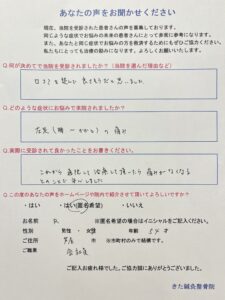 あなたの声をお聞かせください
現在、当院を受診された患者さんの声を募集しております。
同じような症状でお悩みの未来の患者さんにとって非常に参考になります。
また、あなたと同じ症状でお悩みの方を救済するためにもぜひご協力ください。
私たちにとっても治療の励みになります。よろしくお願いいたします。
Q.何が決めてで当院を受診されましたか？（当院を選んだ理由など）
口コミを読んで良さそうだと思いました
Q.どのような症状にお悩みで来院されましたか？
左足（腰〜かかと）の痛み
Q.実際に受診されて良かったことをお書きください。
治療して頂ったら痛みがなくなる
Q.この度のあなたの声をホームページや院内で紹介させて頂いてよろしいですか？
・はい ・はい（匿名希望） ・いいえ
お名前 R. ※匿名希望の場合はイニシャルをご記入ください。
性別 男性 ・ 女性 年齢 54才
ご住所 芦屋 市 ※市町村のみで結構です。
ご職業 会社員
ご記入お疲れ様でした。ご協力誠にありがとうございました。
きた鍼灸整骨院